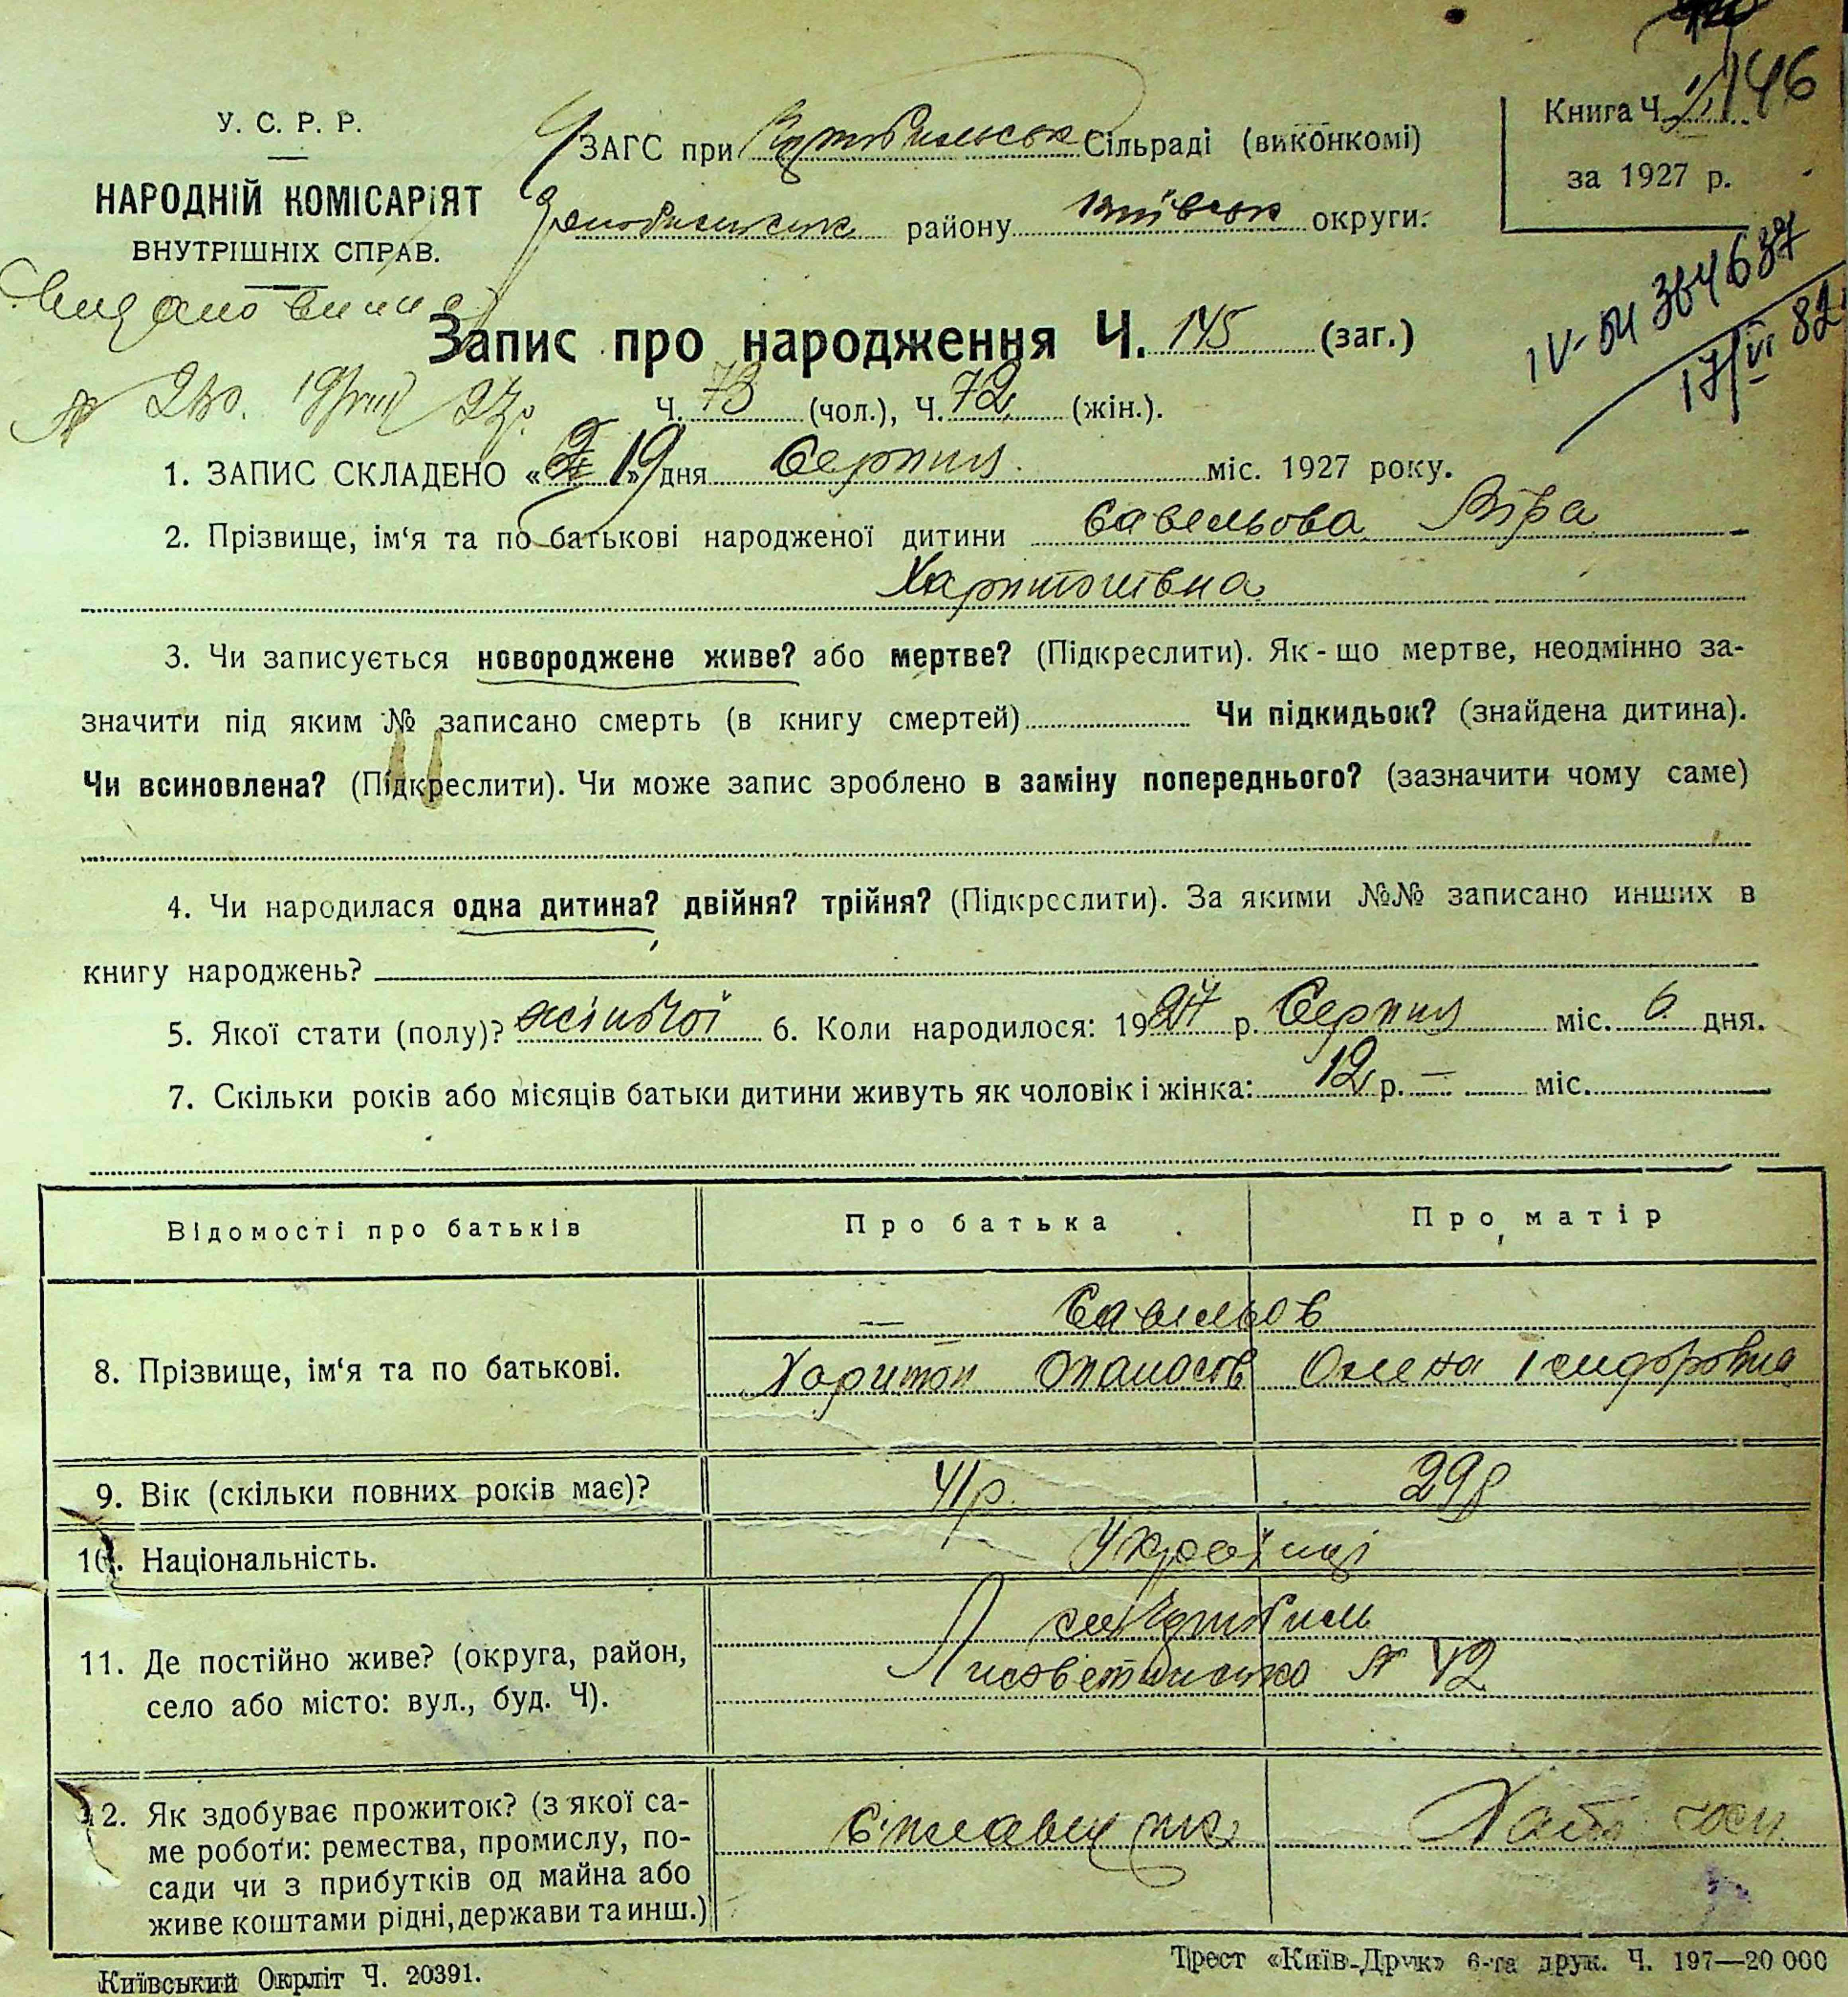 146
У. С. Р. Р.
НАРОДНІЙ КОМІСАРІЯТ
ВНУТРІШНІХ СПРАВ.
ЗАГС при Чорнобильськ Сільраді (виконкомі)
Чорнобильськ району Київськ округи.
Книга Ч. II
за 1927 р.
Видано
IV-БК 364637
17/VI 82
Запис про народження Ч. 145 (заг.)
№ 280. 19/VIII 27р.
Ч. 73 (чол.), Ч. 72 (жін.).
1. ЗАПИС СКЛАДЕНО « 19 » дня Серпня міс. 1927 року.
2. Прізвище, ім‘я та по батькові народженої дитини Савельова Віра
Харитонівна
3. Чи записується новороджене живе? або мертве? (Підкреслити). Як-що мертве, неодмінно за-
значити під яким № записано смерть (в книгу смертей) Чи підкидьок? (знайдена дитина).
Чи всиновлена? (Підкреслити). Чи може запис зроблено в заміну попереднього? (зазначити чому саме)
4. Чи народилася одна дитина? двійня? трійня? (Підкреслити). За якими №№ записано инших в
книгу народжень?
5. Якої стати (полу)? жіночої 6. Коли народилося: 1927 р. Серпня міс. 6 дня.
7. Скільки років або місяців батьки дитини живуть як чоловік і жінка: 12 р. — міс.
Відомості про батьків Про батька Про матір
— Савельов
8. Прізвище, ім‘я та по батькові. Харитон Опанасов Олена Ісидоровна
9. Вік (скільки повних років має)? 41р. 29р
10. Національність. Українці
11. Де постійно живе? (округа, район,
село або місто: вул., буд. Ч).
м. Чорнобиль
№ 42
12. Як здобуває прожиток? (з якої са-
ме роботи: ремества, промислу, по-
сади чи з прибутків од майна або
живе коштами рідні, держави та инш.)
Сплавщик Хатн. госп.
Київський Окрліт Ч. 20391.
Трест «Київ-Друк» 6-та друк. Ч. 197—20 000